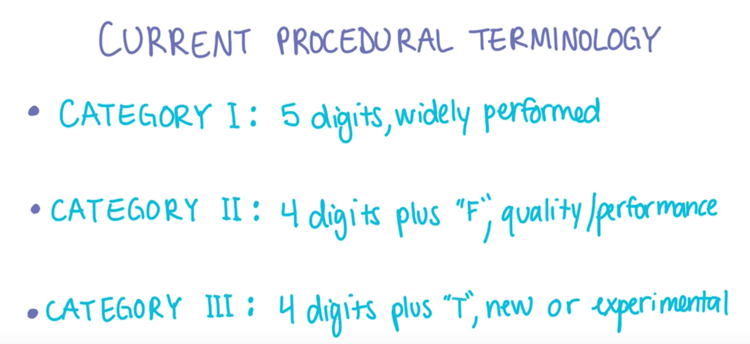 CURRENT PROCEDURAL TERMINOLOGY
• CATEGORY I: 5 digits, widely performed
• CATEGORY II: 4 digits plus "F", quality/performance
• CATEGORY III: 4 digits plus "T", new or experimental